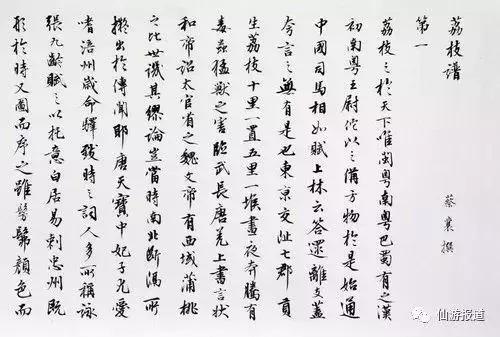 荔枝譜
第一
蔡襄撰
荔枝之於天下唯閩粵南粵巴蜀有之漢
初南粵王尉佗以之備方物於是始通
中國司馬相如賦上林云答遝離支蓋
夸言之無有是也東京交趾七郡貢
生荔枝十里一置五里一堠晝夜奔騰有
毒蟲猛獸之害臨武長唐羌上書言狀
和帝詔太官省之魏文帝有西域蒲桃
之比世譏其繆論豈當時南北斷隔所
擬出於傳聞耶唐天寶中妃子尤愛
嗜涪州歲命驛致時之詞人多所稱詠
張九齡賦之以托意白居易刺忠州既
形於詩又圖而序之雖髣髴顏色而
仙游报道